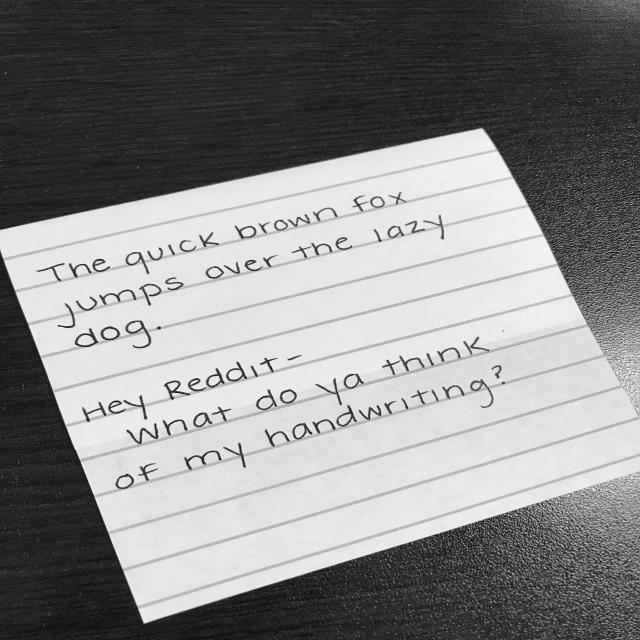 The quick brown fox
jumps over the lazy
dog.
Hey Reddit-
What do ya think
of my handwriting?